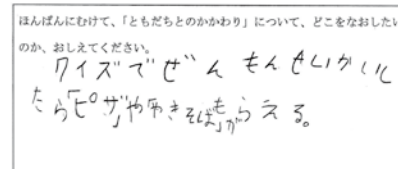 ほんばんにむけて、「ともだちとのかかわり」について、どこをなおしたい
のか、おしえてください。
クイズでぜんもんせいかいし
たら「ピザ」ややきそば」がもらえる。